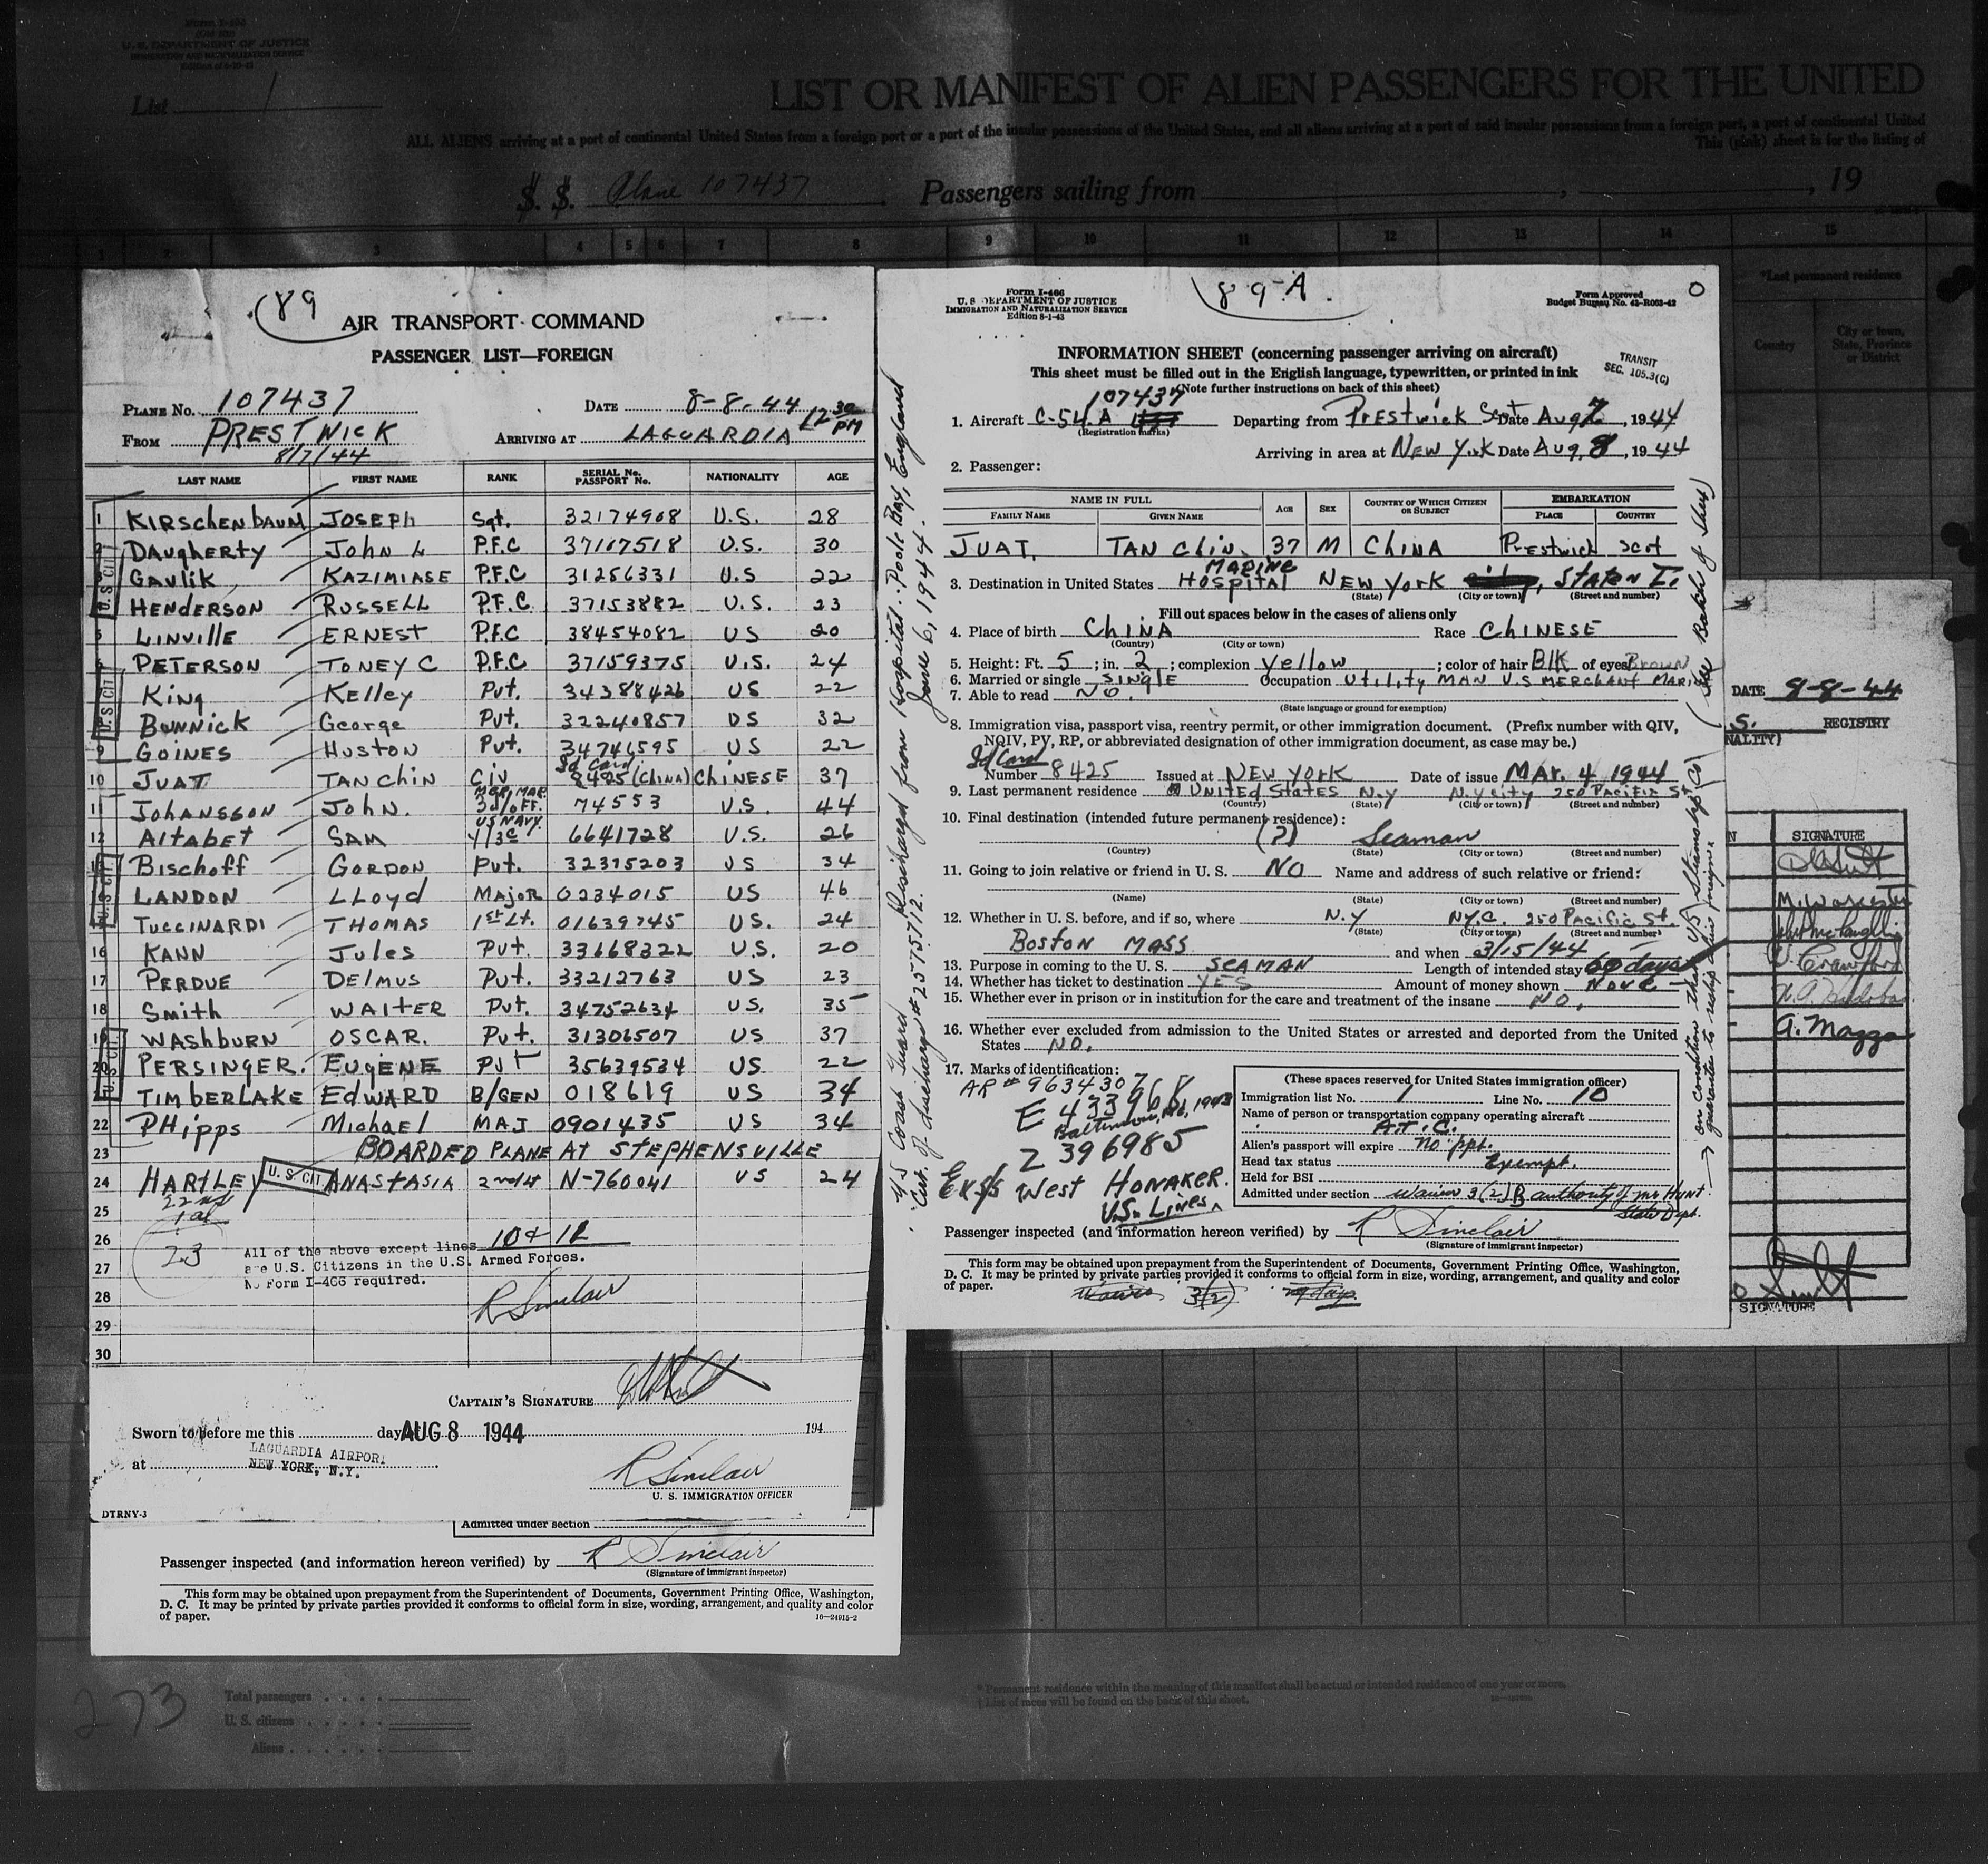 Form I-466
U. S. DEPARTMENT OF JUSTICE
IMMIGRATION AND NATURALIZATION SERVICE
List 1
LIST OR MANIFEST OF ALIEN PASSENGERS FOR THE UNITED
ALL ALIENS arriving at a port of continental United States from a foreign port or a port of the insular possessions of the United States, and all aliens arriving at a port of said insular possessions from a foreign port, a port of continental United
This (pink) sheet is for the listing of
S. S. Plane 107437 Passengers sailing from , , 19
1 2 3 4 5 6 7 8 9 10 11 12 13 14 15
*Last permanent residence
Country
City or town, State, Province or District
89
AIR TRANSPORT COMMAND
PASSENGER LIST—FOREIGN
PLANE NO. 107437 DATE 8-8-44 12 30 PM
FROM PRESTWICK ARRIVING AT LAGUARDIA
8/7/44
LAST NAME FIRST NAME RANK SERIAL No. PASSPORT No. NATIONALITY AGE
1 KIRSCHENBAUM JOSEPH Sgt. 32174908 U.S. 28
2 DAugHERTY JOHN L P.F.C 37107518 U.S. 30
3 GAVLIK KAZIMIASE P.F.C 31256331 U.S 22
4 HENDERSON RUSSELL P.F.C 37153882 U.S. 23
5 LINVILLE ERNEST P.F.C 38454082 US 20
6 PETERSON TONEY C P.F.C 37159375 U.S. 24
7 King Kelley Pvt. 34388426 US 22
8 BUNNICK George Pvt. 32240857 US 32
9 GOINES HUSTON Pvt. 34746595 US 22
10 JUAT TAN CHIN Civ Id Card 8425 (CHINA) CHINESE 37
11 JOHANSSON JOHN. MER. MAR. 3d/OFF. 74553 U.S. 44
12 AltABET SAM US NAVY. Y/3c 6641728 U.S. 26
13 Bischoff GORDON Pvt. 32375203 US 34
14 LANDON LLoyd MAJOR 0234015 US 46
15 TUCCINARDI THOMAS 1st Lt. 01639745 US. 24
16 KANN Jules Pvt. 33668322 U.S. 20
17 PERDUE DElMUS Pvt. 33212763 US 23
18 Smith WAlTER Pvt. 34752634 US. 35
19 WASHBURN OSCAR. Pvt. 31306507 US 37
20 PERSINGER. EUgENE Pvt 35639534 US 22
21 TIMBERLAKE EDWARD B/GEN 018619 US 34
22 PHipps Michael MAJ 0901435 US 34
23 BOARDED PLANE AT STEPHENSVILLE
24 HARTLEY U. S. CIT. ANASTASIA 2nd Lt N-760041 US 24
U. S. CIT.
U. S. CIT.
U. S. CIT.
U. S. CIT.
25
26
27
28
29
30
22 US
1 al
23
All of the above except lines 10 & 12
are U.S. Citizens in the U.S. Armed Forces.
No Form I-466 required.
R Sinclair
CAPTAIN'S SIGNATURE
Sworn to before me this day AUG 8 1944 194
at LAGUARDIA AIRPORT
NEW YORK, N.Y.
R Sinclair
U. S. IMMIGRATION OFFICER
DTRNY-3
Admitted under section
Passenger inspected (and information hereon verified) by R Sinclair
(Signature of immigrant inspector)
This form may be obtained upon prepayment from the Superintendent of Documents, Government Printing Office, Washington,
D. C. It may be printed by private parties provided it conforms to official form in size, wording, arrangement, and quality and color
of paper.
16—24915-2
Form I-466
U. S DEPARTMENT OF JUSTICE
IMMIGRATION AND NATURALIZATION SERVICE
Edition 8-1-43
89-A.
Form Approved
Budget Bureau No. 43-R063-42
INFORMATION SHEET (concerning passenger arriving on aircraft)
This sheet must be filled out in the English language, typewritten, or printed in ink
(Note further instructions on back of this sheet)
TRANSIT
SEC. 105.3(C)
107437
1. Aircraft C-54.A Departing from Prestwick Scot Date Aug 7, 1944
(Registration marks)
Arriving in area at NEW York Date Aug. 8, 1944
2. Passenger:
NAME IN FULL AGE SEX COUNTRY OF WHICH CITIZEN OR SUBJECT EMBARKATION
FAMILY NAME GIVEN NAME PLACE COUNTRY
JUAT, TAN Chin. 37 M CHINA Prestwick Scot
3. Destination in United States MARINE HOSPITAL NEW YORK city, STATEN I.
(State) (City or town) (Street and number)
Fill out spaces below in the cases of aliens only
4. Place of birth CHINA Race CHINESE
(Country) (City or town)
5. Height: Ft. 5; in. 2; complexion yellow; color of hair Blk of eyes Brown
6. Married or single SINGLE Occupation Utility MAN U.S MERCHANT MARI
7. Able to read NO.
(State language or ground for exemption)
8. Immigration visa, passport visa, reentry permit, or other immigration document. (Prefix number with QIV,
NQIV, PV, RP, or abbreviated designation of other immigration document, as case may be.)
Id Card
Number 8425 Issued at NEW YORK Date of issue MAR. 4 1944
9. Last permanent residence UNITED STATES N.Y N.Y city 250 PACIFIC St
(Country) (State) (City or town) (Street and number)
10. Final destination (intended future permanent residence):
(?) Seaman
(Country) (State) (City or town) (Street and number)
11. Going to join relative or friend in U. S. NO Name and address of such relative or friend:
(Name) (State) (City or town) (Street and number)
12. Whether in U. S. before, and if so, where N.Y N.Y.C. 250 Pacific St.
(State) (City or town) (Street and number)
Boston MASS and when 3/15/44
13. Purpose in coming to the U. S. SEAMAN Length of intended stay 60 days
14. Whether has ticket to destination YES Amount of money shown None
15. Whether ever in prison or in institution for the care and treatment of the insane NO.
16. Whether ever excluded from admission to the United States or arrested and deported from the United
States NO.
17. Marks of identification:
AR # 9634307
E 433968
Baltimore, Md, 1943
Z 396985
Ex S/S West HONAKER.
U.S. Lines.
(These spaces reserved for United States immigration officer)
Immigration list No. 1 Line No. 10
Name of person or transportation company operating aircraft
A.T.C.
Alien's passport will expire no ppt.
Head tax status Exempt.
Held for BSI
Admitted under section waiver 3(2) B authority of Mr Hunt
State Dept.
Passenger inspected (and information hereon verified) by R Sinclair
(Signature of immigrant inspector)
This form may be obtained upon prepayment from the Superintendent of Documents, Government Printing Office, Washington,
D. C. It may be printed by private parties provided it conforms to official form in size, wording, arrangement, and quality and color
of paper.
3(2) 29 days
US Coast Guard Discharged from Hospital.. Poole Bay, England
Cert. of discharge # 2575712. June 6, 1944.
(See Back of Sheet)
on condition that US Steamship Co
guarantee to reship him foreign
DATE 8-8-44
S. REGISTRY
NALITY)
SIGNATURE
M. Worcester
W. Crawford
A. Mazza
SIGNATURE
273
Total passengers
U. S. citizens
Aliens
* Permanent residence within the meaning of this manifest shall be actual or intended residence of one year or more.
† List of races will be found on the back of this sheet.